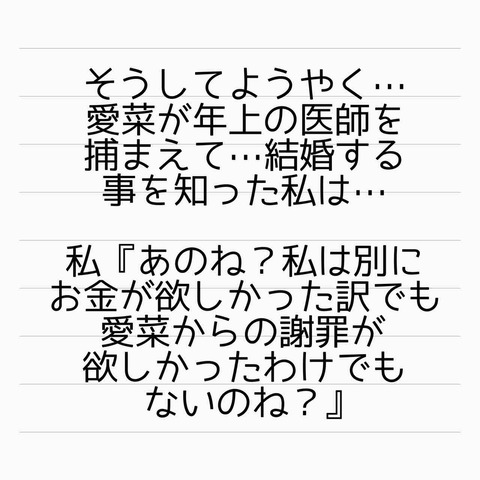 そうしてようやく…
愛菜が年上の医師を
捕まえて…結婚する
事を知った私は…
私『あのね？私は別に
お金が欲しかった訳でも
愛菜からの謝罪が
欲しかったわけでも
ないのね？』